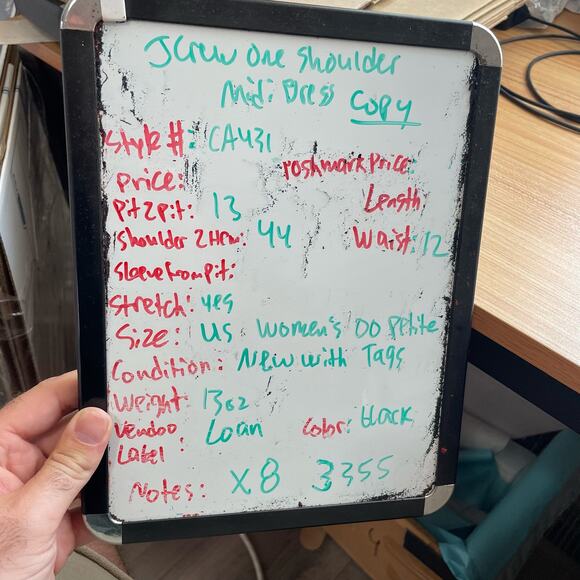 JCrew One Shoulder
Midi Dress Copy
Style #: CA431
poshmark price:
price:
Length:
Pit2pit: 13
Shoulder 2 Hem: 44
Waist: 12
Sleeve from pit:
Stretch: yes
Size: US Women's 00 Petite
Condition: New with Tags
Weight: 13oz
Vendoo Loan
Label
Color: black
Notes: X8 3355